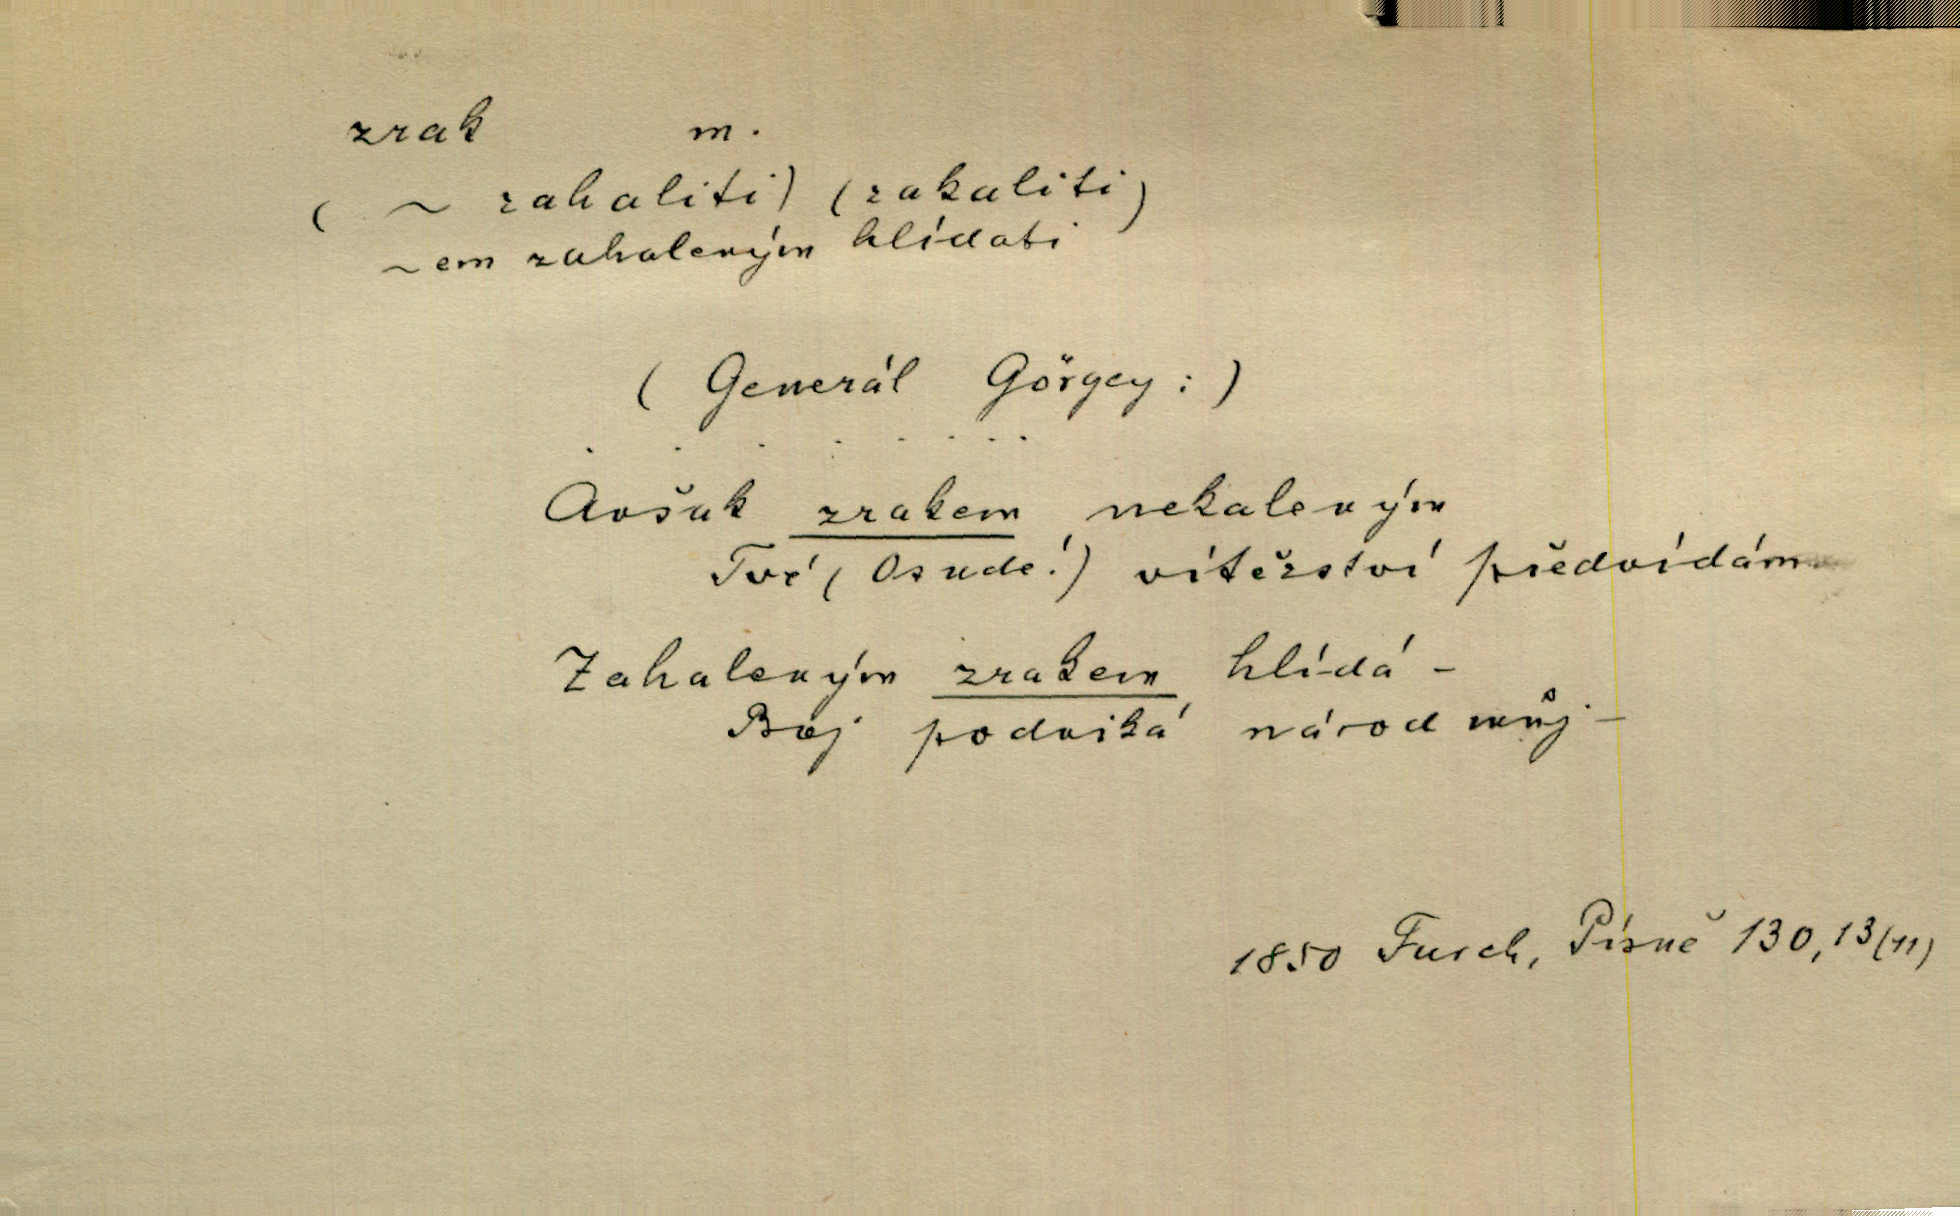 zrak m.
( ~ zahaliti) (zakaliti)
~em zahaleným hlídati
( Generál Görgey : )
. . . . . . . .
Avšak zrakem nekaleným
Tvé ( Osude!) vítězství předvídám
Zahaleným zrakem hlídá –
Boj podniká národ můj –
1850 Fürch, Písně 130,13(11)